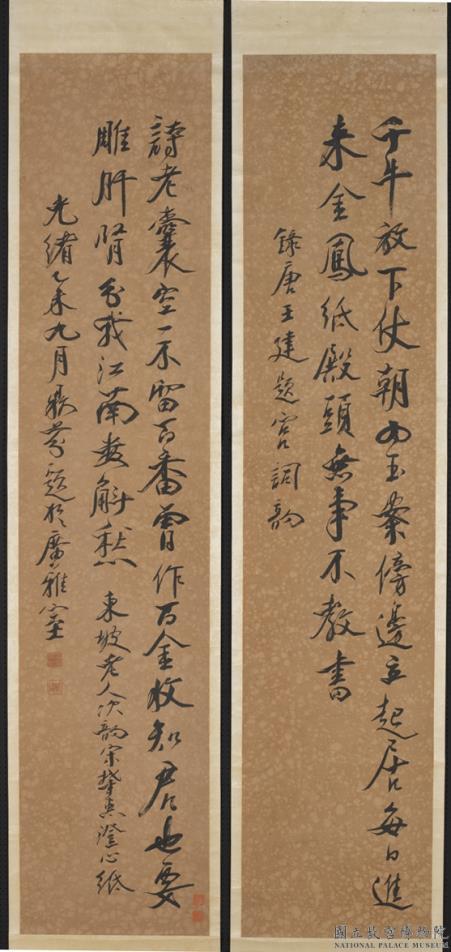 千牛放下仗朝初玉案傍邊立起居每日進
来金鳳紙殿頭無事不教書
錄唐王建題宮詞韵
詩老囊空一不留百番曾作百金收知君也要
雕肝腎分我江南數斛愁 東坡老人次韵宋肇惠澄心紙
光緒乙未九月芬題於廣雅室
國立故宮博物院
NATIONAL PALACE MUSEUM